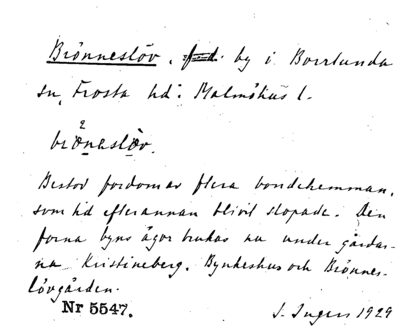 Brönneslöv. by i Borrlunda
sn, Frosta hd: Malmöhus l.
brö²naslöv.
Bestod fordomar flera bondehemman,
som tid efter annan blivit slopade. Den
forna byns ägor brukas nu under gårdar-
na Kristineberg, Bynkeshus och Brönnes-
lövgården.
Nr 5547. I. Ingers 1929